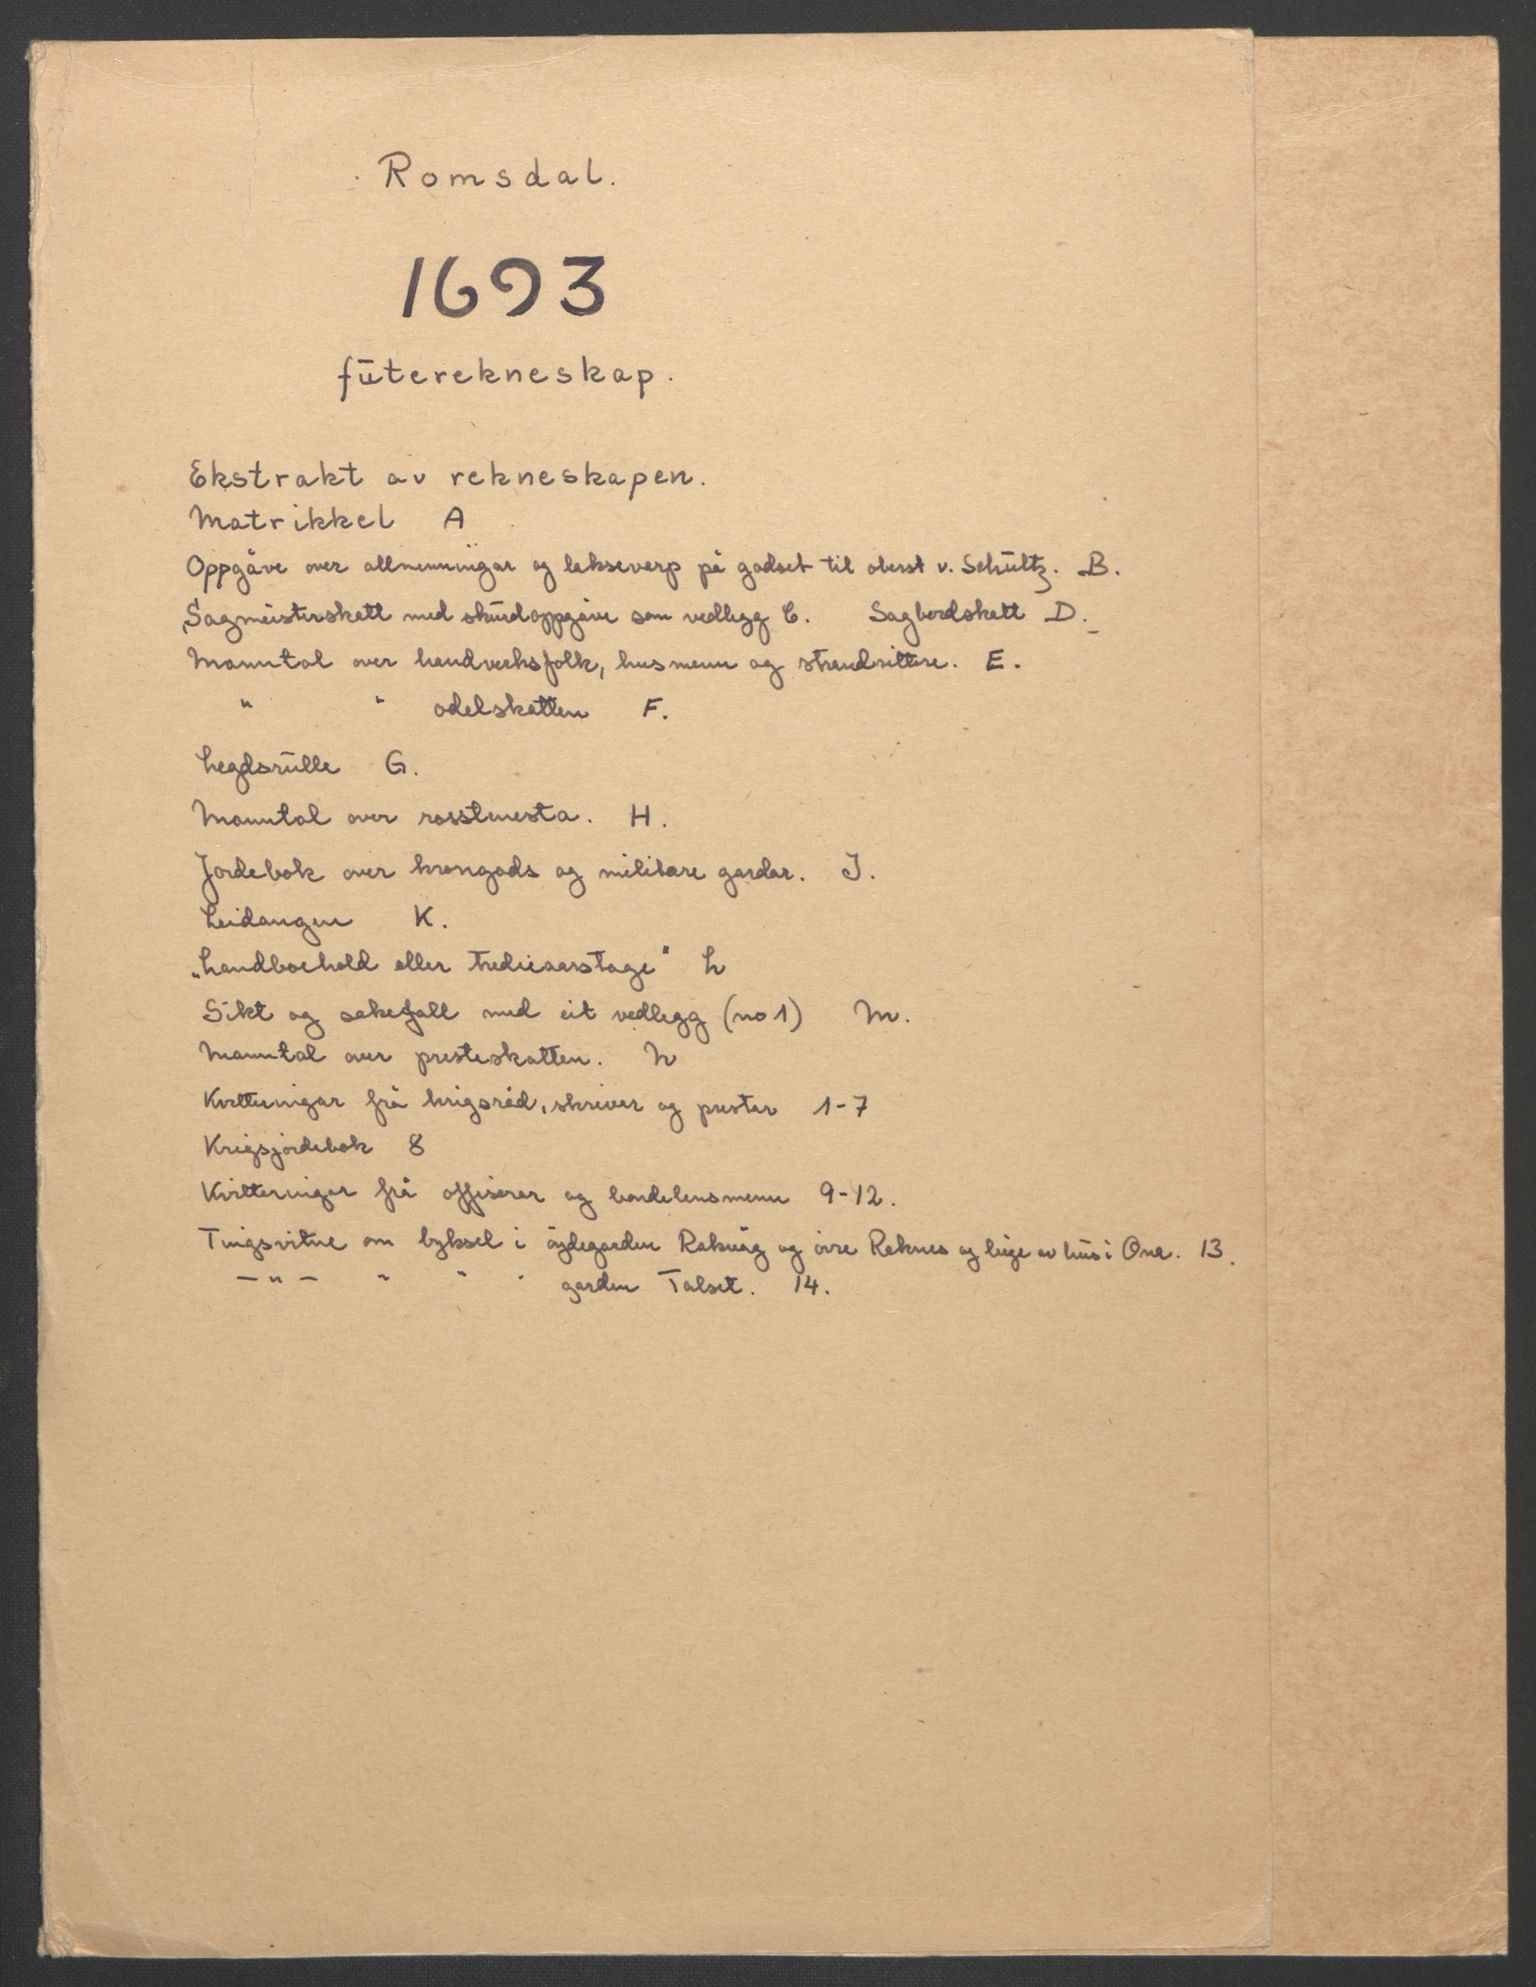 Romsdal.
1693
fūterekneskap.
Ekstrakt av rekneskapen.
Matrikkel A
Oppgåve over allmenningar og laksevarp på godset til oberst v. Schūltz. B.
Sagmeisterskatt med skūrdoppgåve som vedlegg C. Sagbordskatt D.
Manntal over handverksfolk, husmenn og strandsittere. E.
" " odelskatten F.
Legdsrūlle G.
Manntal over rosstenesta. H.
Jordebok over krongods og militære gardar. J.
Leidangen K.
„Landboehold eller tredieaarstage" L
Sikt og sakefall med eit vedlegg (no 1) M.
Manntal over presteskatten. N
Kvitteringar frå krigsråd, skrivar og prestar 1-7
Krigsjordebok 8
Kvitteringar frå offiserar og bondelensmenn 9-12.
Tingsvitne om byksel i øydegarden Rakvåg og øvre Reknes og leige av hūs i Ona. 13.
— " — " " " garden Talset. 14.